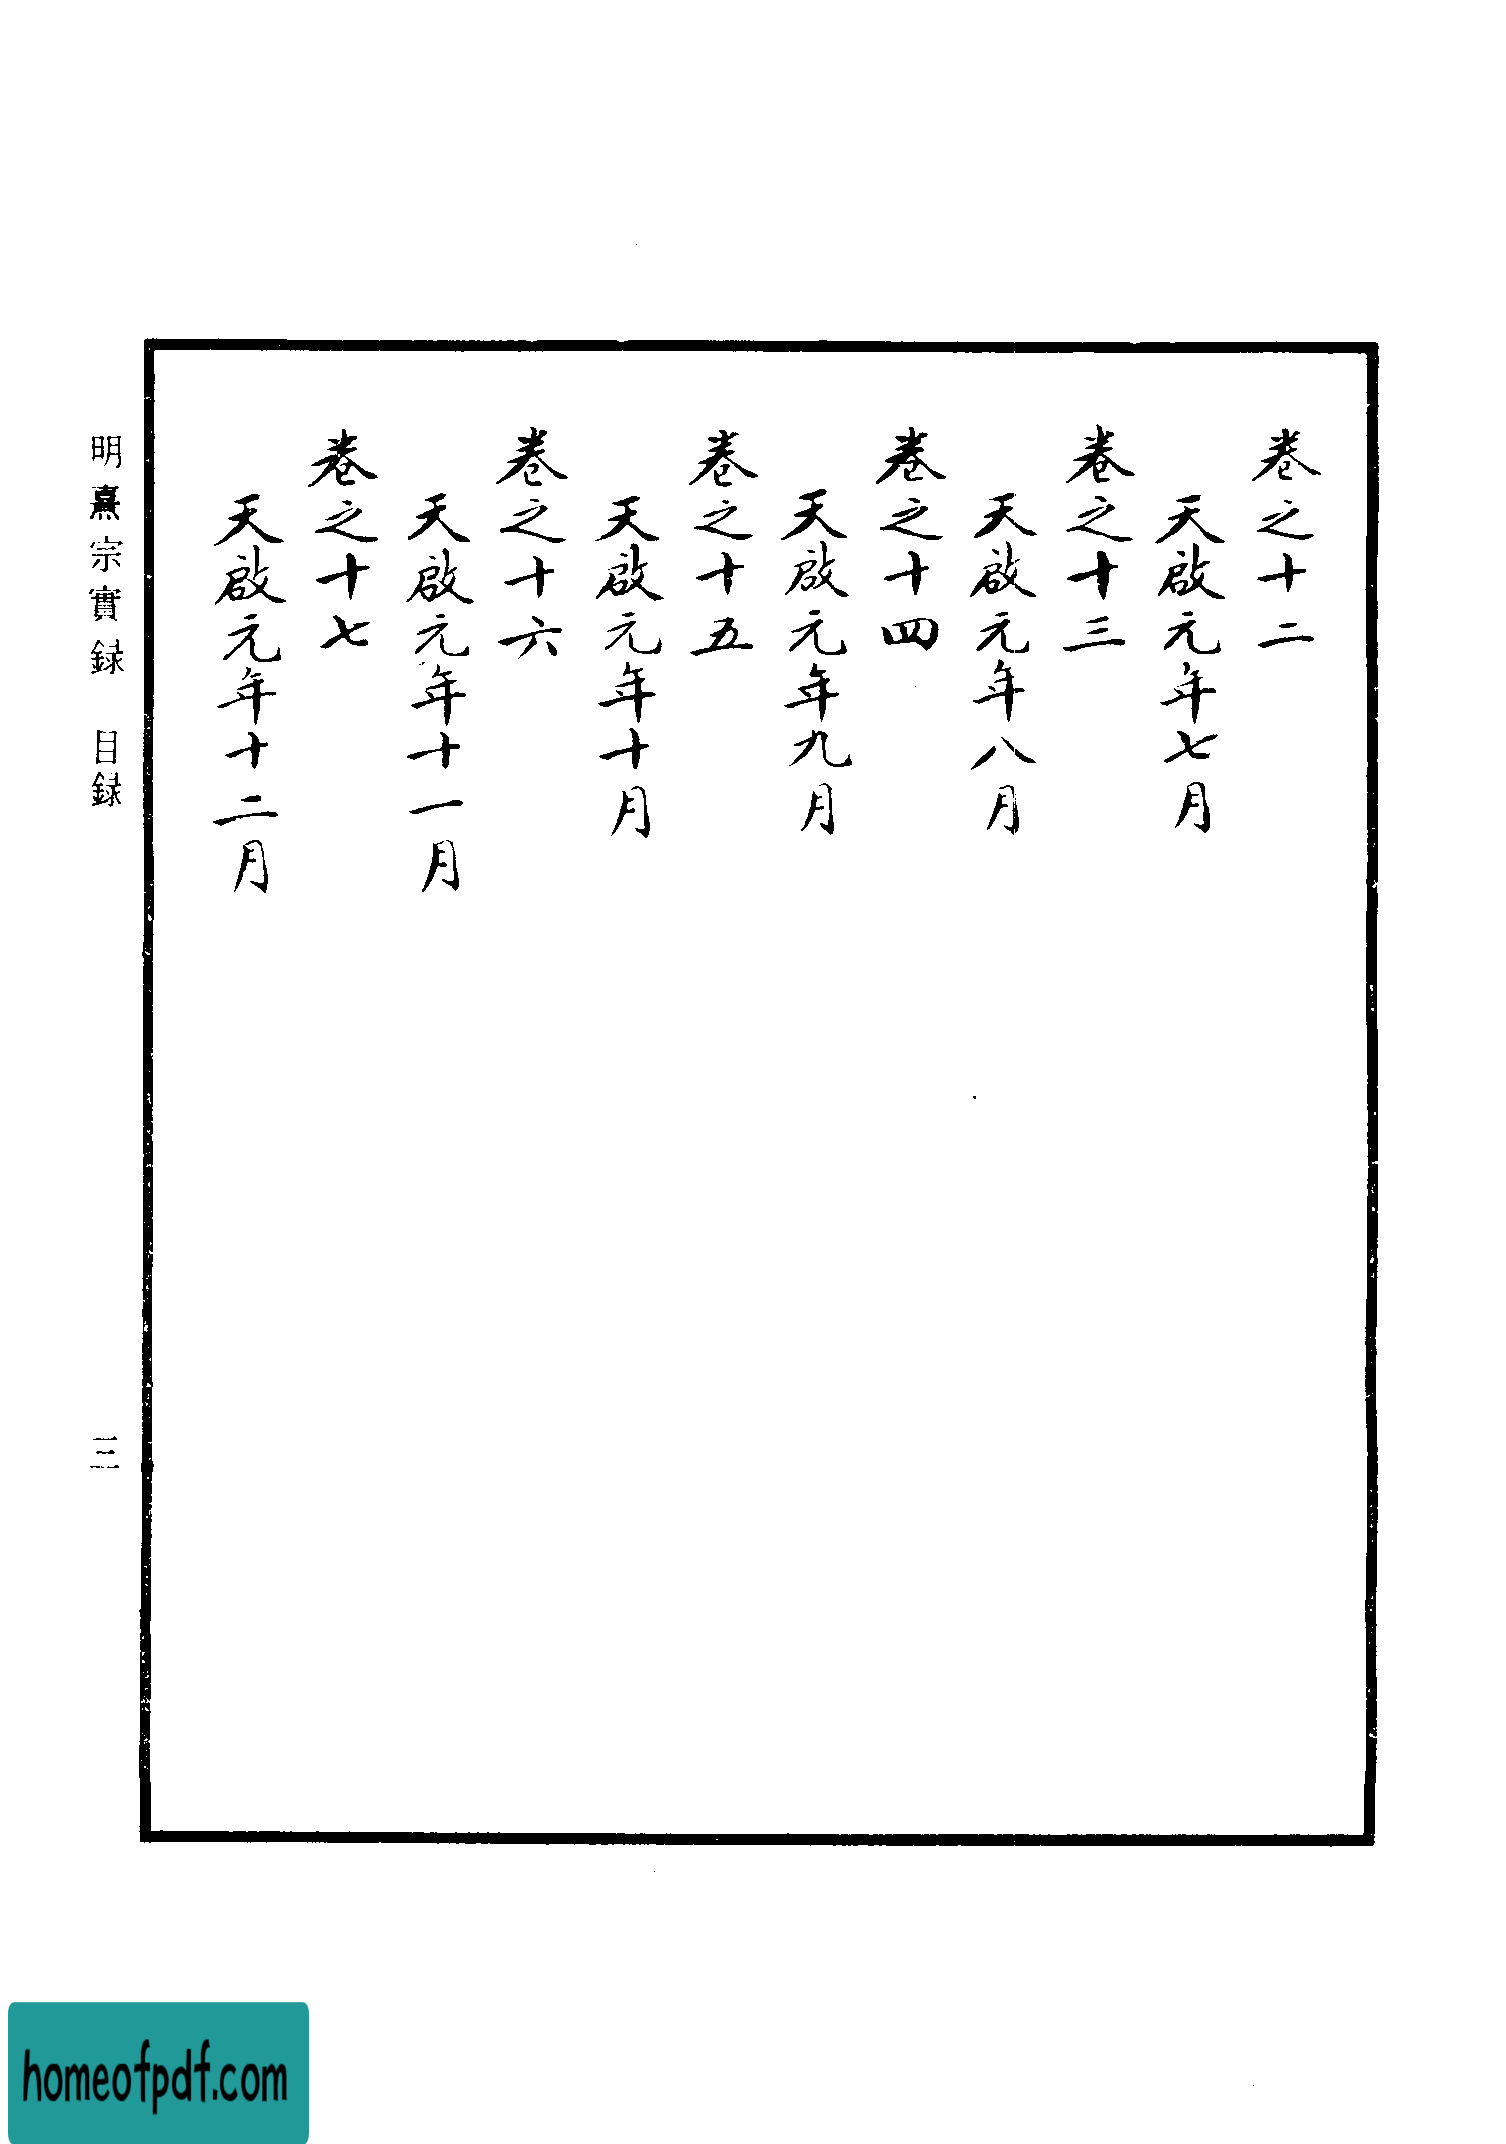 卷之十二
天啟元年七月
卷之十三
天啟元年八月
卷之十四
天啟元年九月
卷之十五
天啟元年十月
卷之十六
天啟元年十一月
卷之十七
天啟元年十二月
明熹宗實録 目録 三
homeofpdf.com